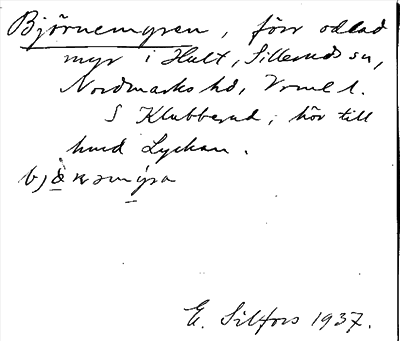 Björnemyren, förr odlad
myr i Hult, Silleruds sn,
Nordmarks hd, Vrml l.
S Klubberud; hör till
hmd Lyckan.
E. Silfors 1937.